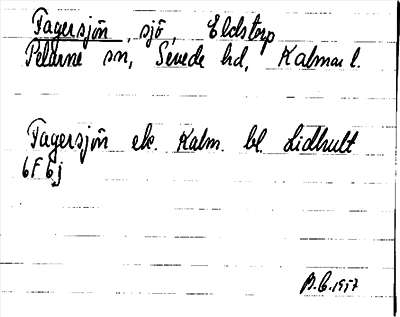 Fagersjön, sjö, Eldstorp
Pelarne sn, Sevede hd, Kalmar l.
Fagersjön ek. Kalm. bl. Lidhult
6F 6j
B.E. 1957